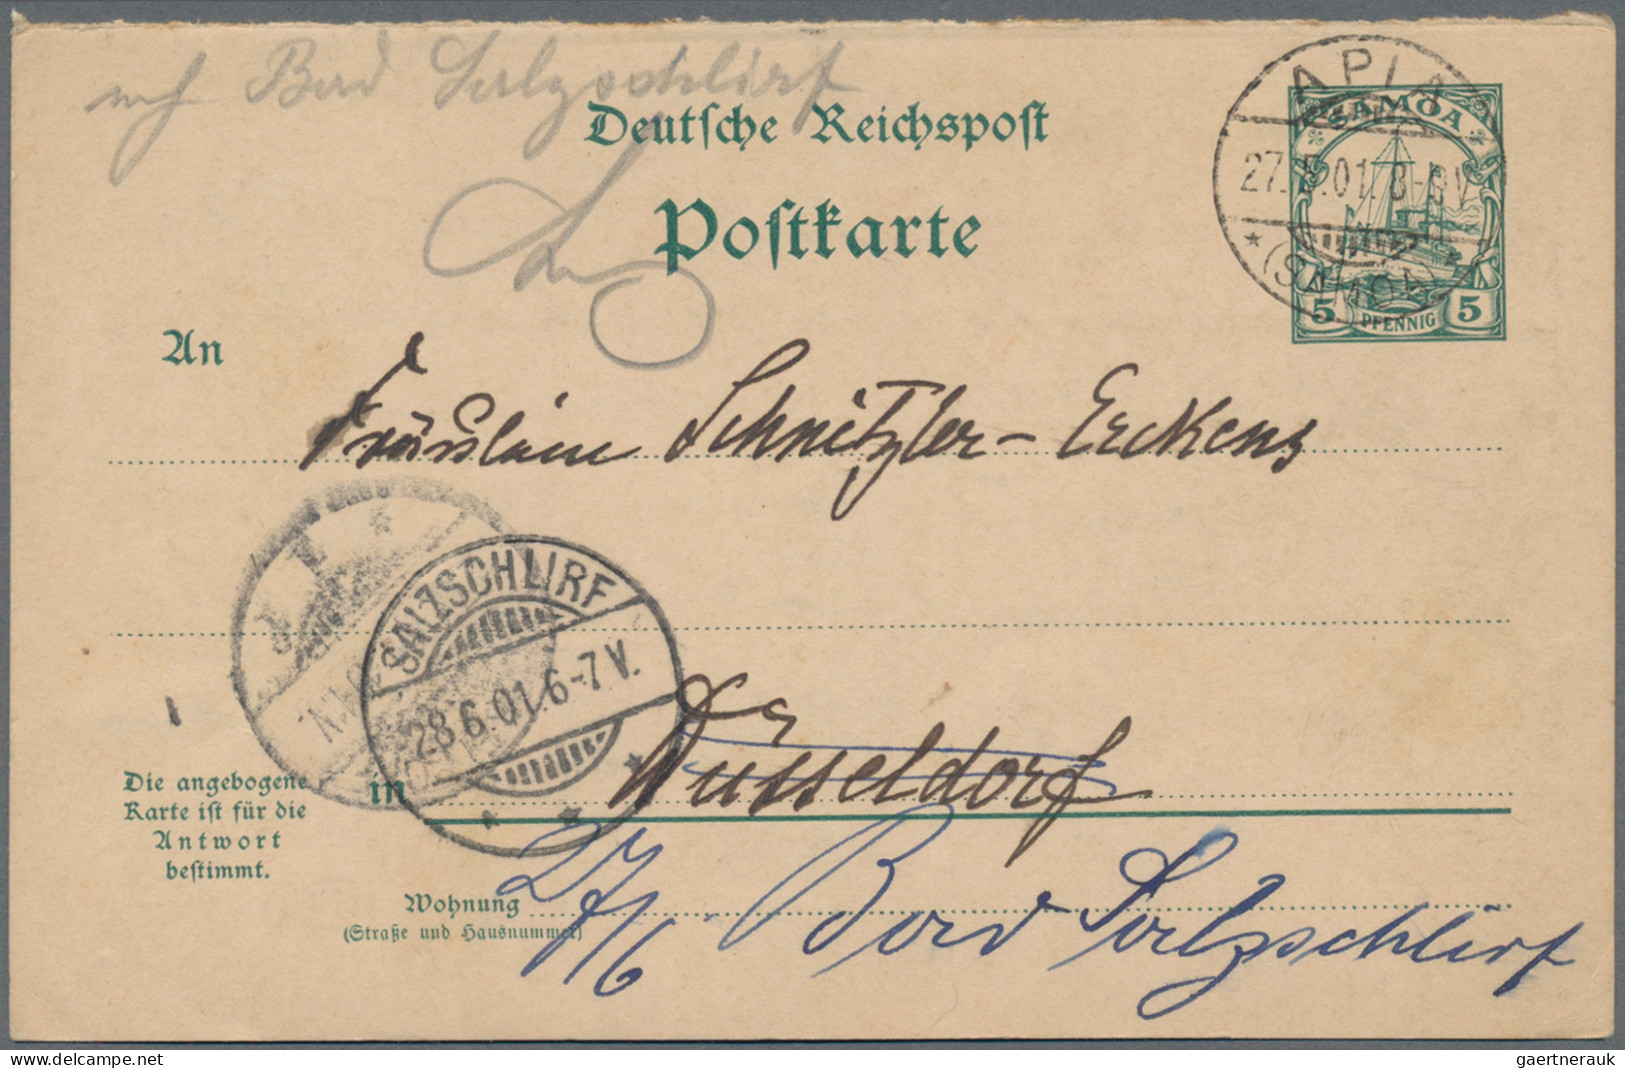 Bad Salzschlirf
Deutsche Reichspost
Postkarte
APIA
27.5.01. 8-9V
(SAMOA)
SAMOA
5 PFENNIG 5
An
Fräulein Schnitzler-Erckens
SALZSCHLIRF
28.6.01. 6-7 V.
in Düsseldorf
Die angebogene
Karte ist für die
Antwort
bestimmt.
27/6. Bad Salzschlirf
Wohnung
(Straße und Hausnummer)
gaertnerauk